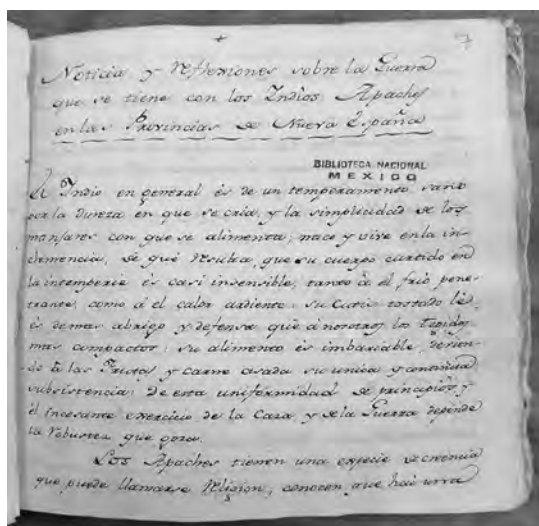 +
Noticia y Reflexiones sobre la Guerra
que se tiene con los Indios Apaches
en las Provincias de Nueva España
BIBLIOTECA NACIONAL
MEXICO
El Indio en general és de un temperamento sano
por la dureza en que se cria, y la simplicidad de los
manjares con que se alimenta; nace y vive en la in-
clemencia, de que resulta, que su cuerpo curtido en
la intemperie és casi insensible, tanto á el frio pene-
trante, como á el calor ardiente: su cutis tostado les
és demas abrigo y defensa que á nosotros los tegidos
mas compactos: su alimento és imbariable siendo
la las frutas y carne asada su unica y continua
subsistencia: de esta uniformidad de principios y
el incesante exercicio de la Caza, y de la Guerra depende
la robustez que goza.
Los Apaches tienen una especie de creencia
que puede llamarse Religion, conocen que hai un a